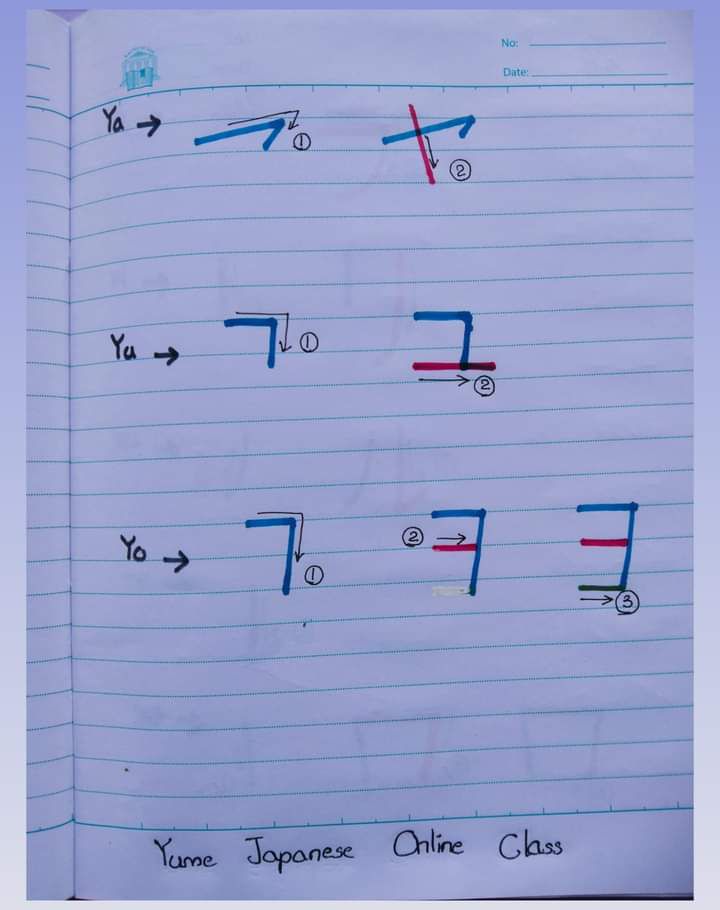 No:
Date:
Ya → ① ②
Yu → ① ユ ②
Yo → ① ② ヨ ③
Yume Japanese Online Class